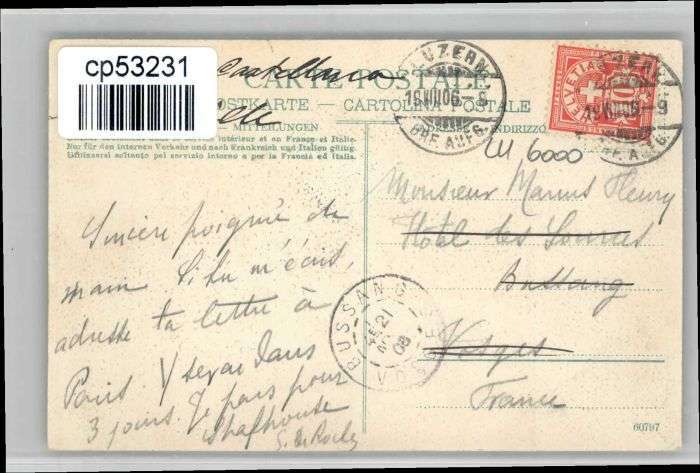 cp53231
CARTE POSTALE
POSTKARTE — CARTOLINA POSTALE
MITTEILUNGEN
INDIRIZZO
intérieur et an France et Italie.
Nur für den internen Verkehr und nach Frankreich und Italien gültig.
Utilizzarsi soltanto pel servizio interno e per la Francia ed Italia.
LUZERN
19.VIII.06.–9
BRF. AUFG.
HELVETIA
10
LUZERN
19.VIII.06–9
BRF. AUFG.
6000
Monsieur Marius Fleury
Hôtel des Sources
Bussang
Vosges
France
BUSSANG
21
08
VOSGES
Sincère poignée de
main. Si tu m'écris,
adresse ta lettre à
Paris. J'y serai dans
3 jours. Je pars pour
Shafhouse
60797